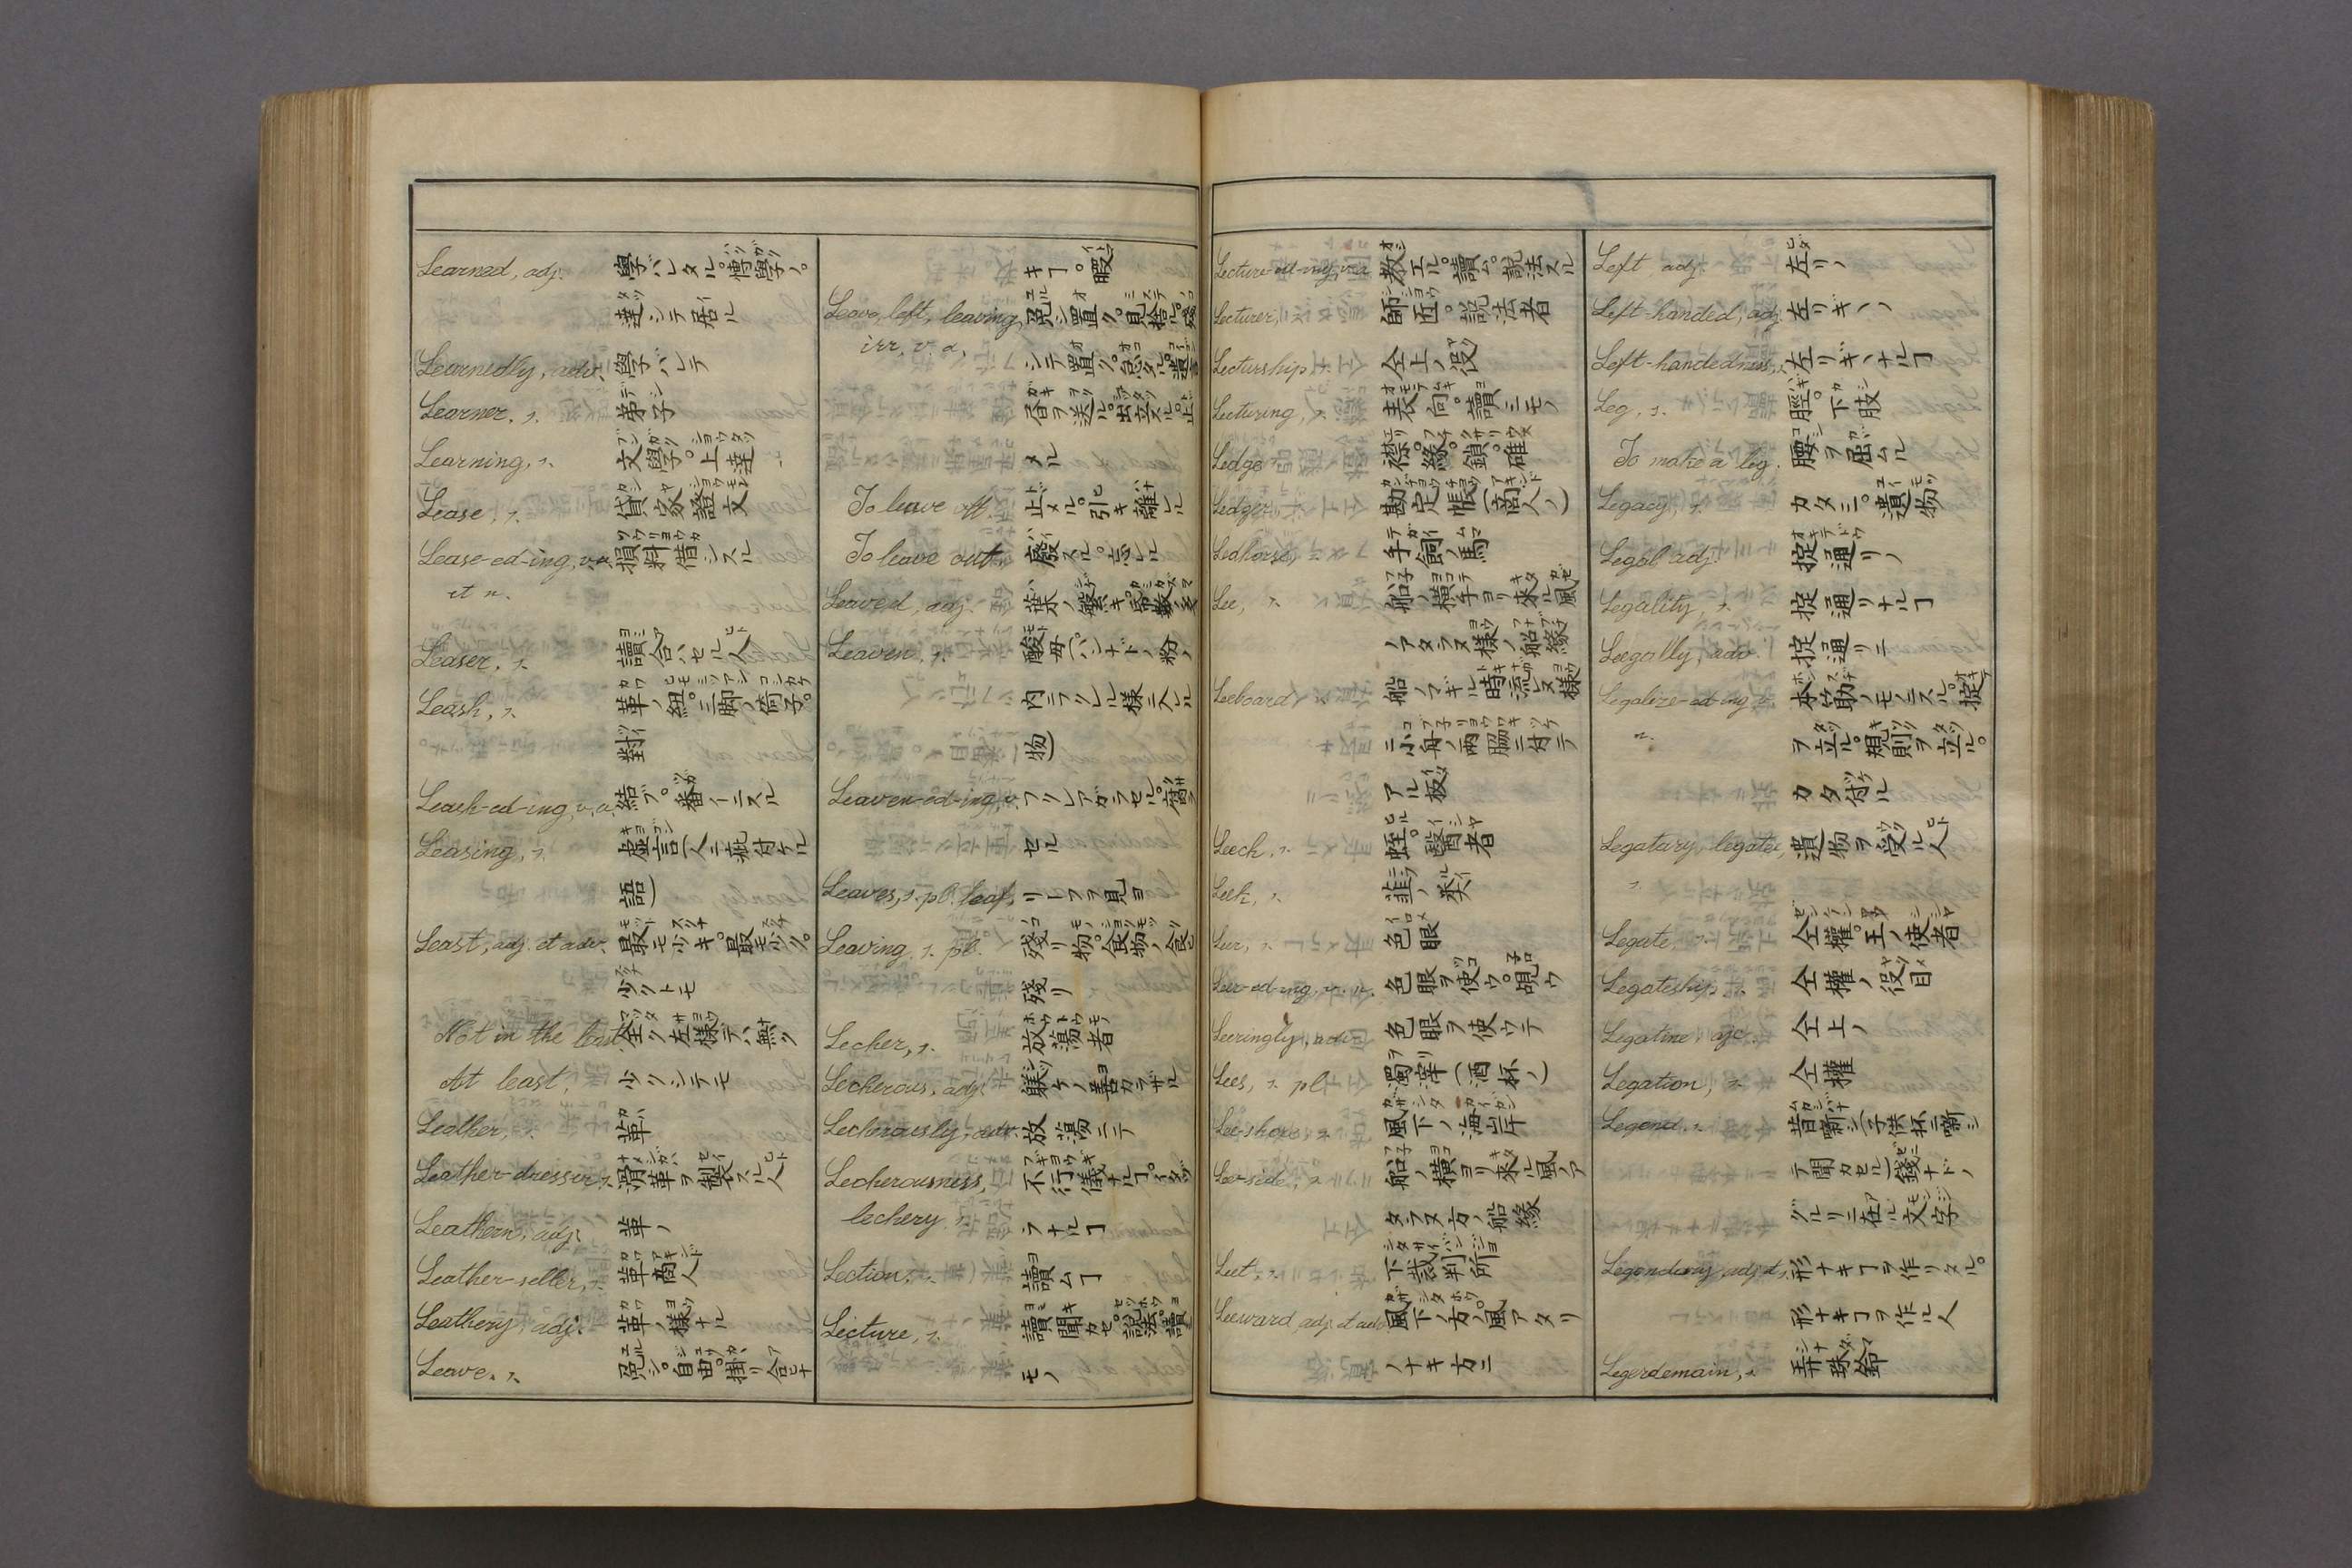 Learned, adj. 學バレタル。博學ノ。
達シテ居ル
Learnedly, adv. 學バレテ
Learner, s. 弟子
Learning, s. 文學。上達
Lease, s. 貸家證文
Lease-ed-ing, v.a. 損料借シスル
et n.
Leaser, s. 讀合ハセル人
Leash, s. 革ノ紐。三脚ノ倚子。
對
Leash-ed-ing, v.a. 結ブ。番イニスル
Leasing, s. 虚言(人ニ疵付ケル
語)
Least, adj. et adv. 最モ少キ。最モ少ク。
少クトモ
Not in the least. 全ク左様デハ無ク
At least. 少クシテモ
Leather, s. 革
Leather-dresser, s. 滑革ヲ製スル人
Leathern, adj. 革ノ
Leather-seller, s. 革商人
Leathery, adj. 革ノ様ナル
Leave, s. 免シ。自由。掛リ合ヒナ
キヿ。暇
Leave, left, leaving, 免シ置ク。見捨ル。
irr. v. a. シテ置ク。怠タル。遺
ヲ送ル。出立スル。止
メル
To leave off. 止メル。引キ離レル
To leave out. 廢スル。忘レル
Leaved, adj. 葉ノ繁キ。
Leaven, s. 酸母(パンナドノ粉ノ
内ニ入ル
物)
Leaven-ed-ing, v. フクレアガラセル。腐ラ
セル
Leaves, s. pl. leaf. リーフヲ見ヨ
Leaving, s. pl. 殘リ物。食物ノ食ヒ
殘リ
Lecher, s. 放蕩者
Lecherous, adj. 躾ケノ善カラザル
Lecherously, adv. 放蕩ニテ
Lecherousness, 不行儀ナルヿ。イタヅ
lechery. s. ラナルヿ
Lection, s. 讀ムヿ
Lecture, s. 讀聞カセ。説法。讀
モノ
Lecture-ed-ing, v.a. 教エル。讀ム。説法スル
Lecturer, 師匠。説法者
Lecturship 仝上ノ役
Lecturing, s. 表向。讀ミモノ
Ledge 襟。縁。鎖。碓
Ledger 勘定帳(商人ノ)
Ledhorse, 手飼ノ馬
Lee, s. 船ノ横手ヨリ來ル風
ノアタラヌ様ノ船縁
Leeboard 船ノマギル時流レヌ様
ニ小舟ノ兩脇ニ付テ
アル板
Leech, s. 蛭。醫者
Leek, s. 韮ノ類
Leer, s. 色眼
Leer-ed-ing, v. n. 色眼ヲ使ウ。覗ウ
Leeringly, adv. 色眼ヲ使ウテ
Lees, s. pl. 濁滓(酒杯ノ)
Lee-shore, s. 風下ノ海岸
Lee-side, s. 船ノ横ヨリ來ル風ノア
タラヌ方ノ船縁
Leet, s. 下裁判所
Leeward adj. et adv. 風下ノ方ノ。風アタリ
ノナキ方ニ
Left, adj. 左リノ
Left-handed, adj. 左リギヽノ
Left-handedness, s. 左リギヽナルヿ
Leg, s. 脛。下肢
To make a leg. 腰ヲ屈ムル
Legacy, s. カタミ。遺物
Legal adj. 掟通リノ
Legality, s. 掟通リナルヿ
Legally, adv. 掟通リニ
Legalize-ed-ing v. 本筋ノモノニスル。掟
a. ヲ立ル。規則ヲ立ル。
カタ付ケル
Legatary legatee, 遺物ヲ受ル人
s.
Legate, s. 全權。王ノ使者
Legateship, s. 全權ノ役目
Legatine, ajc. 仝上ノ
Legation, s. 全權
Legend, s. 昔噺シ(子供杯ニ噺シ
テ聞カセル)錢ナドノ
グルリニ在ル文字
Legendary, adj. et s. 形ナキヿヲ作リタル。
形ナキヿヲ作ル人
Legerdemain, s. 弄珠鈴